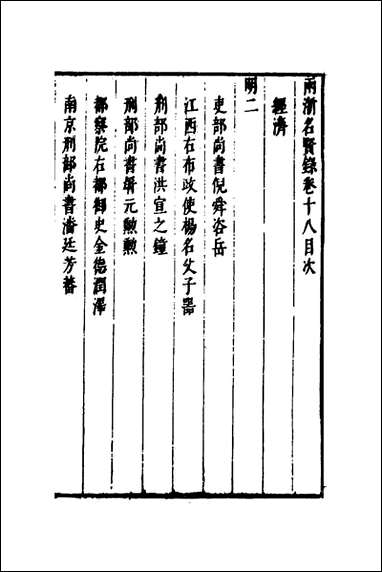 兩浙名賢錄卷十八目次
經濟
明二
吏部尚書倪舜咨岳
江西右布政使楊名父子噐
刑部尚書洪宣之鐘
刑部尚書屠元勲勲
都察院右都御史金德潤澤
南京刑部尚書潘廷芳蕃